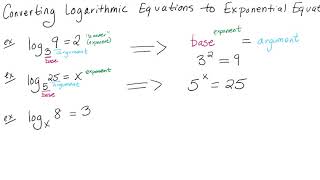 Converting Logarithmic Equations to Exponential Equat
ex log₃ 9 = 2 "answer" (exponent) base argument ⟹ base^exponent = argument
3² = 9
ex log₅ 25 = x exponent base argument ⟹ 5ˣ = 25
ex logₓ 8 = 3